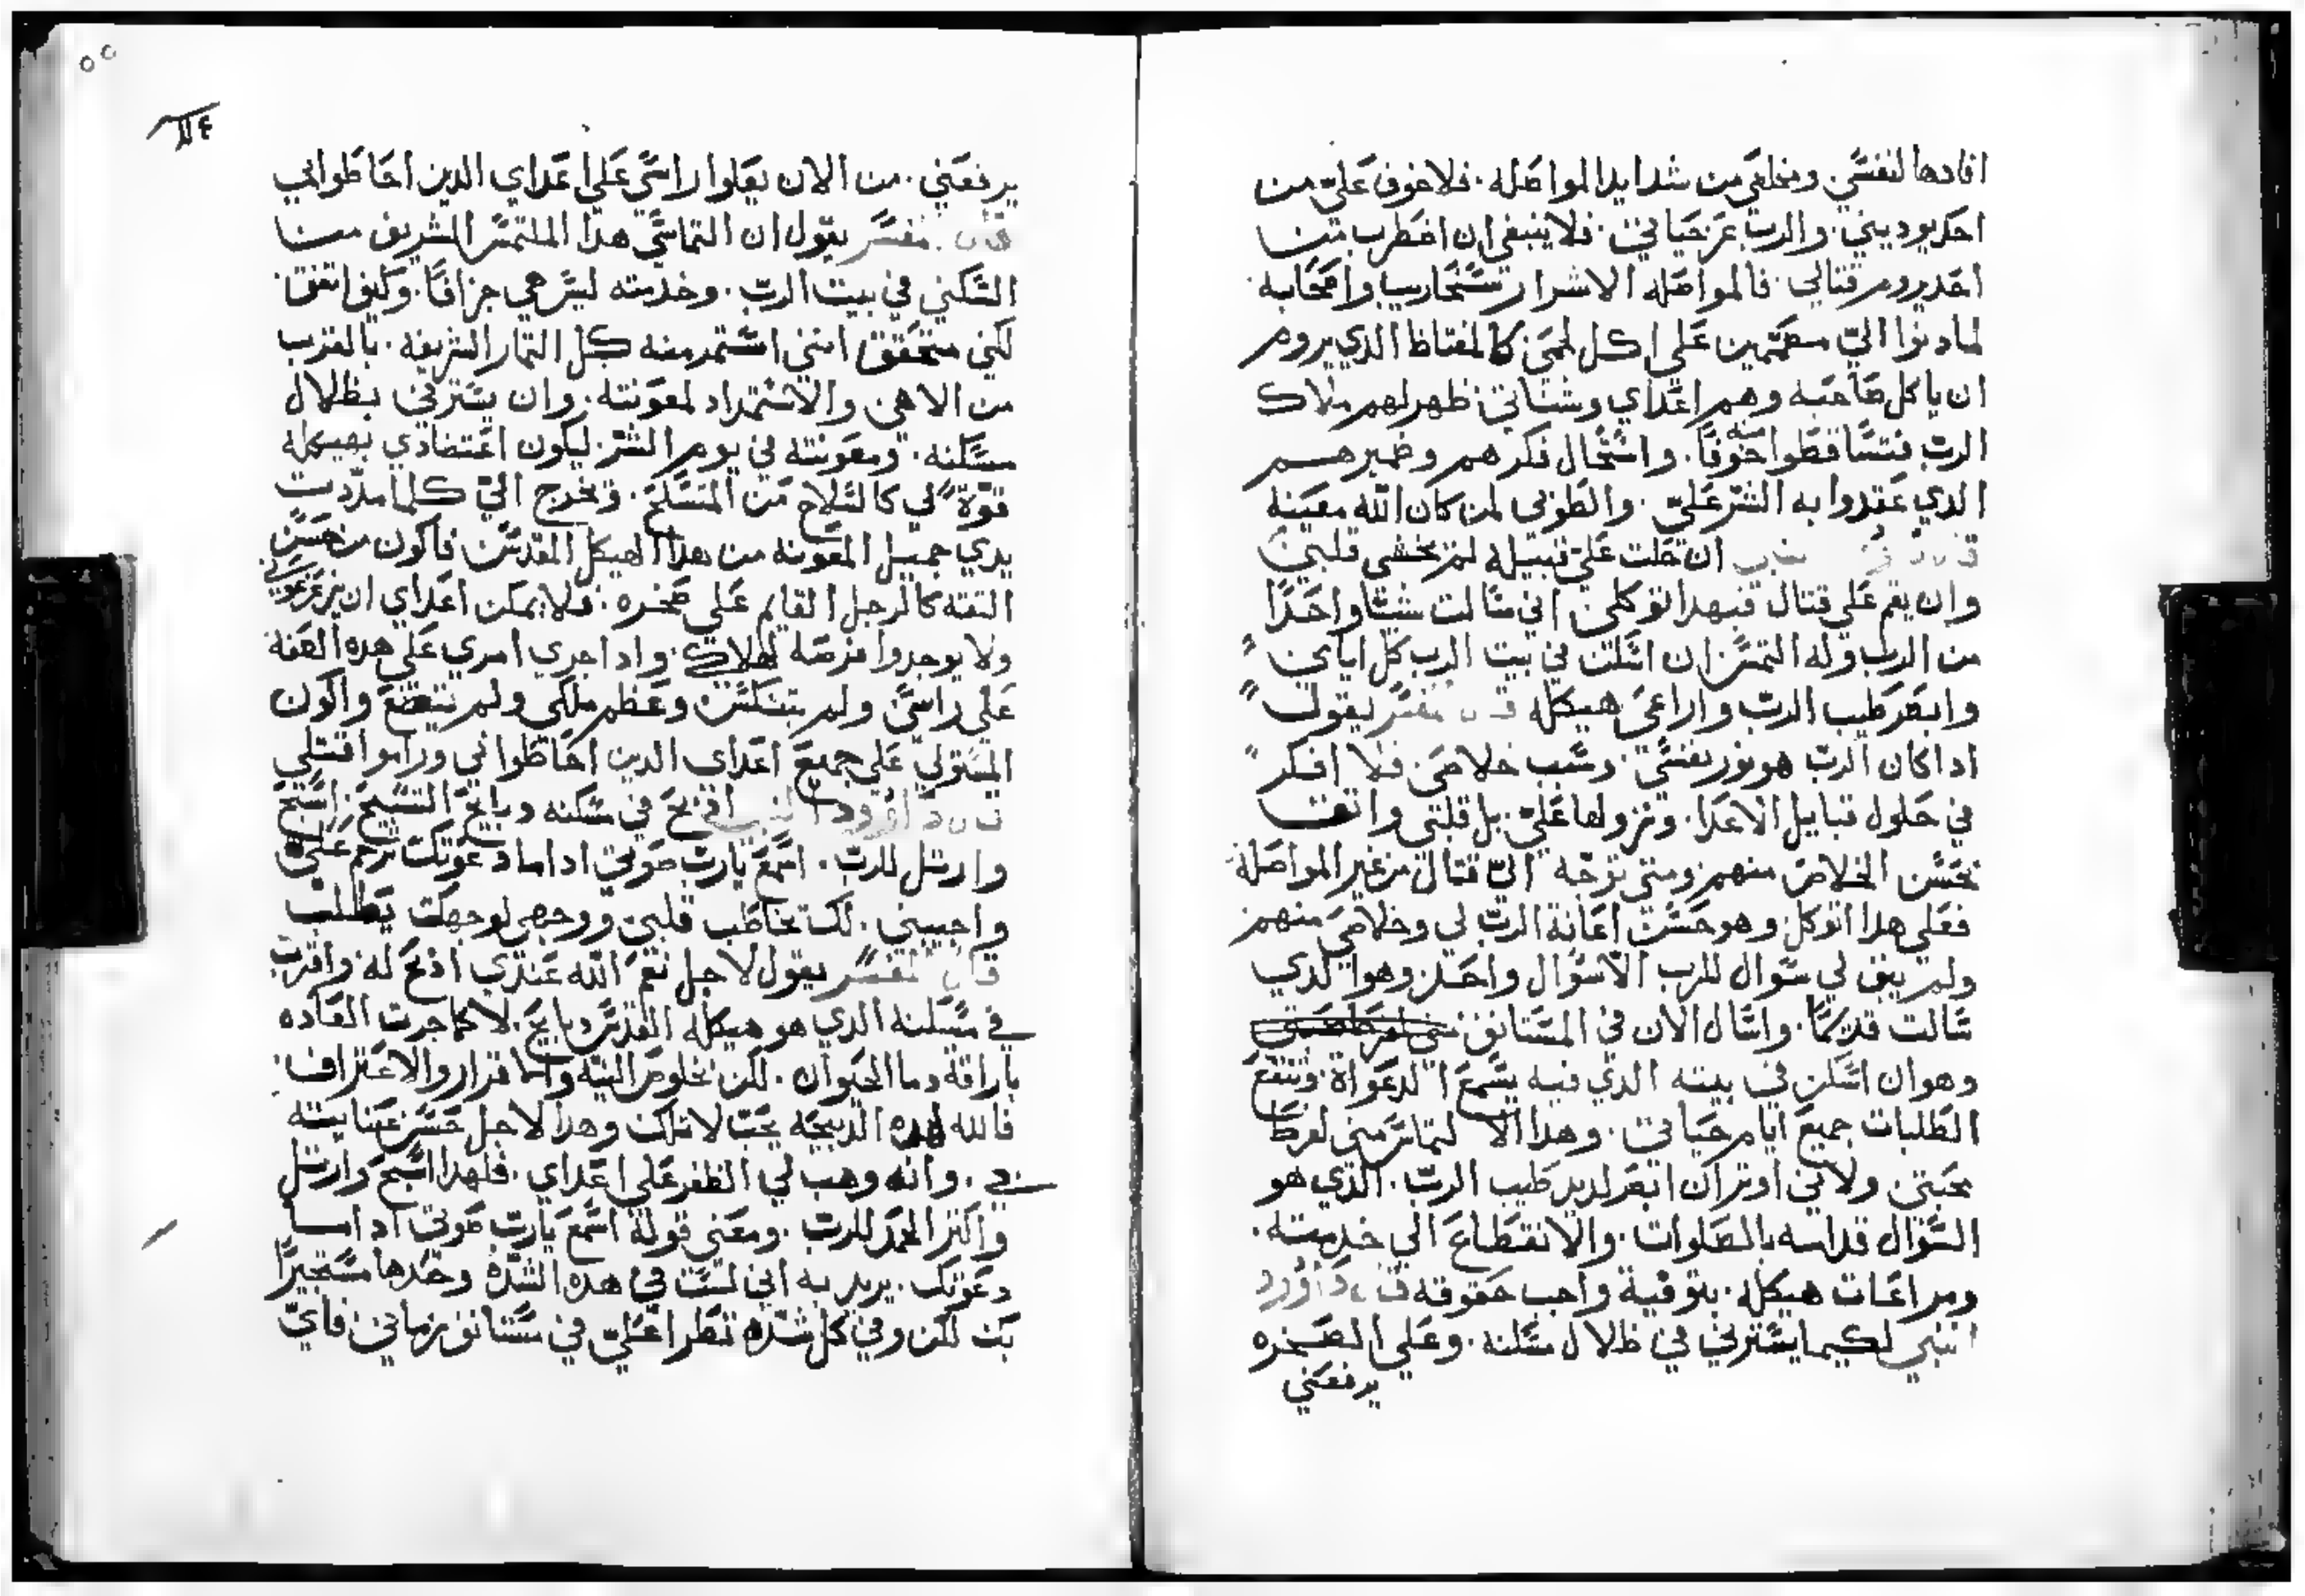 افادها لنفسي. ومخلصي من شدايد المواصله. فلا خوف عليّ من
احد يوديني. والرب عز حياتي. فلا ينبغي ان اضطرب من
احد يروم قتالي. فالمواصله الاشرار ستحاريب واصحابه.
لما دنوا اليّ مصممين علي اكل لحمي كالمغتاظ الذي يروم
ان ياكل صاحبه وهم اعداي وشناتي ظهر لهم ملاك
الرب فتساقطوا منه خوفًا. واستحال فكرهم وضميرهم
الذي عقدوا به الشر عليّ. والطوبى لمن كان الله معينه
ان حلت عليّ قبيله لم يخشى قلبي
وان يقم علي قتال فبهدا توكلي اني سالت شيًا واحدًا
من الرب وله التمس ان اسكن في بيت الرب كل ايامي
وابصر طيب الرب واراعي هيكله قال مفسر يقول
ادا كان الرب هو نور نفسي. وسبب خلاصي. فلا افكر
في حلول قبايل الاعدا. ونزولها عليّ. بل قلبي واتق
بحسن الخلاص منهم ومتى توجه اليّ قتال من غير المواصلة
فعلي هدا اتوكل وهو حسن اعانة الرب لي وخلاصي منهم
ولم يبق لي سوال للرب الا سوال واحد وهو الذي
سالت قديمًا. واسال الان في المستانف
وهو ان اسكن في بيته الذي فيه يسمع الدعواة. وتنتفع
الطلبات جميع ايام حياتي. وهدا الا لتماس مني لفرط
محبتي ولاني اوثر ان ابصر لديد طيب الرب. الذي هو
السوال قدامه بالصلوات. والانقطاع الي خدمته.
ومراعات هيكله. بتوفية واجب حقوقه قال داوود
النبي لكيما يسترني في ظلال مسكنه. وعلي الصخره
يرفعني
١١٤
يرفعني. من الان يعلوا راسي علي اعداي الدين احاطوا بي
قال مفسر يقول ان التماسي هدا الملتمس الشريف من
السكني في بيت الرب. وخدمته ليس هي جزافًا. وكيف اتفق.
لكني متحقق انني استمر منه كل التمار الشريفه. بالقرب
من الاهي والاستمداد لمعونته. وان يسترني بظلال
مسكنه. ومعونته في يوم الشر. ليكون اعتضادي بهيكله
قوة لي كالسلاح من المسلح. وتخرج اليّ كلما مدّيت
يدي جميل المعونه من هدا الهيكل المقدس فاكون من حسن
التقه كالرجل القايم علي صخره. فلا يمكن اعداي ان يزعزعوني
ولا يوجدوا فرصه لهلاكي. وادا جري امري علي هده الصفة
علي راسي ولم يتنكس وعظم ملكي ولم يتضعضع واكون
المستولي علي جميع اعداي الدين احاطوا بي وراموا قتلي
قال داوود النبي ادبح في مسكنه دبايح التسبيح. اسبح
وارتل للرب. اسمع يا رب صوتي ادا ما دعوتك ترحم عليّ
واجيبني. لك تخاطب قلبي ووجهي لوجهك يطلب
قال المفسر يقول لاجل نعم الله عندي ادبح له واقرب
في مسكنه الذي هو هيكله القدس دبايح. لا كما جرت العاده
باراقة دما الحيوان. لكن بخلوص النيه والاقرار والاعتراف.
فالله لهده الدبيحه يحب لا تلك وهدا لاجل حسن عنايته
بي. وانه وهب لي الظفر علي اعداي. فلهدا اسبح وارتل
واكتر الحمد للرب. ومعني قوله اسمع يا رب صوتي ادا ما
دعوتك. يريد به اني لست في هده الشدة وحدها مستجيرًا
بك لكن وفي كل شده تطرا عليّ في مستانف زماني فايّ